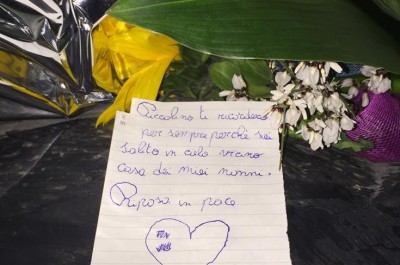 Piccolino ti ricorderò
per sempre perché sei
salito in cielo vicino
casa dei miei nonni.
Riposa in pace